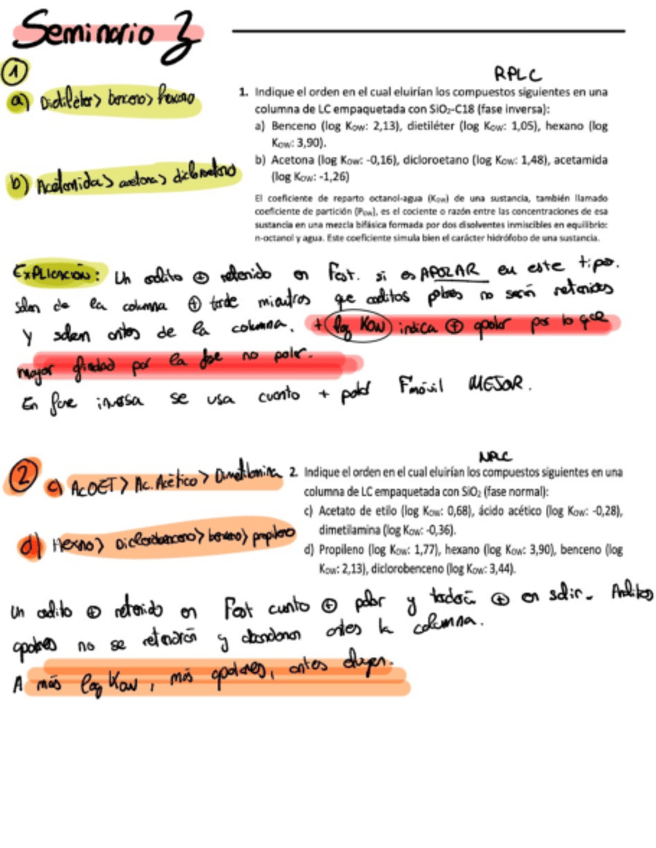 Seminario 3
①
RPLC
a) Dietiléter > benceno > hexano
1. Indique el orden en el cual eluirían los compuestos siguientes en una
columna de LC empaquetada con SiO₂-C18 (fase inversa):
a) Benceno (log Kow: 2,13), dietiléter (log Kow: 1,05), hexano (log
Kow: 3,90).
b) Acetamida > acetona > dicloroetano
b) Acetona (log Kow: -0,16), dicloroetano (log Kow: 1,48), acetamida
(log Kow: -1,26)
El coeficiente de reparto octanol-agua (Kow) de una sustancia, también llamado
coeficiente de partición (Pow), es el cociente o razón entre las concentraciones de esa
sustancia en una mezcla bifásica formada por dos disolventes inmiscibles en equilibrio:
n-octanol y agua. Este coeficiente simula bien el carácter hidrófobo de una sustancia.
EXPLICACIÓN: Un solito ⊕ retenido en Fest. si es APOLAR en este tipo.
Salen de la columna ⊕ tarde mientras que solitos polares no serán retenidos
y salen antes de la columna. + log Kow indica ⊕ apolar por lo que
mayor afinidad por la fase no polar.
En fase inversa se usa cuanto + polar Fmóvil MEJOR.
NPLC
② c) AcOET > Ac. Acético > Dimetilamina
2. Indique el orden en el cual eluirían los compuestos siguientes en una
columna de LC empaquetada con SiO₂ (fase normal):
c) Acetato de etilo (log Kow: 0,68), ácido acético (log Kow: -0,28),
dimetilamina (log Kow: -0,36).
d) Hexano > Diclorobenceno > benceno > propileno
d) Propileno (log Kow: 1,77), hexano (log Kow: 3,90), benceno (log
Kow: 2,13), diclorobenceno (log Kow: 3,44).
Un solito ⊕ retenido en Fest cuanto ⊕ polar y tardará ⊕ en salir. Analitos
apolares no se retendrán y abandonan antes la columna.
A más log Kow, más apolares, antes eluyen.